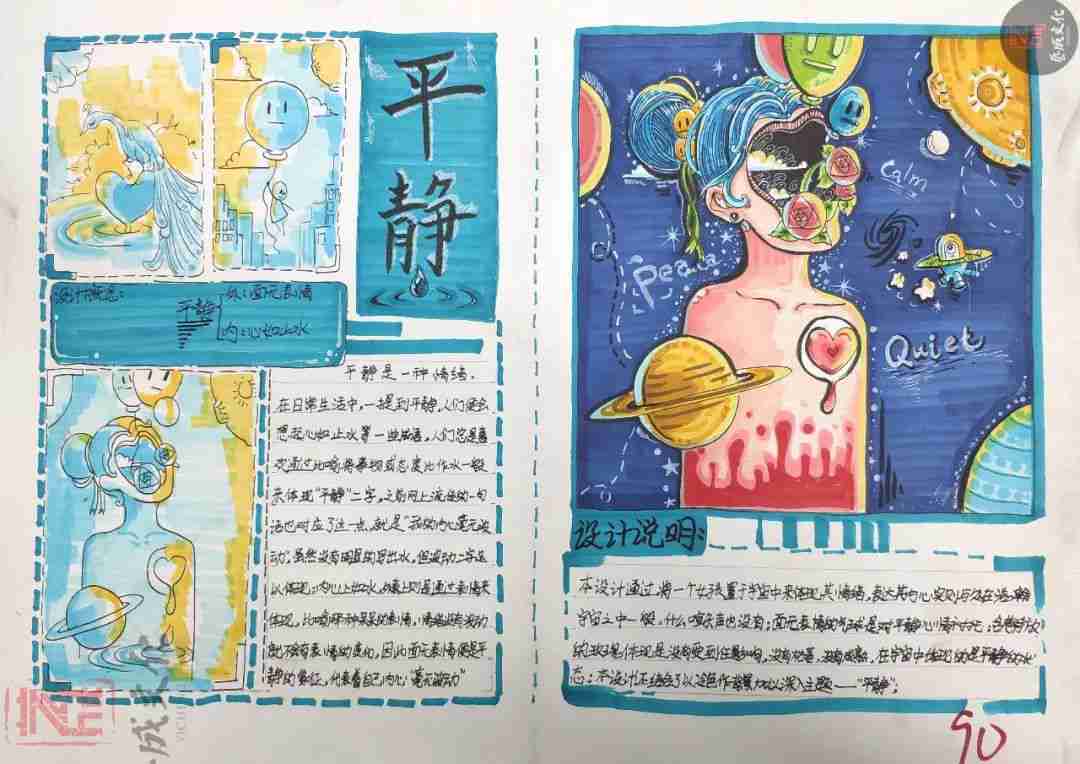 平
静
设计概念:
平静
外:面无表情
内:心如止水
平静是一种情绪.
在日常生活中,一提到平静,人们便会
想起心如止水等一些成语,人们总是喜
欢通过比喻将事物或态度比作水一般
来体现"平静"二字,之前网上流传的一句
话也对应了这一点,就是"我的内心毫无波
动",虽然没有明显的写出水,但波动二字足
以体现,内心如水,
体现,比如那种呆呆的表情,情绪没有波动
就不会有表情的变化,因此面无表情便是平
静的象征,代表着自己内心"毫无波动"
Calm
Peace
Quiet
设计说明:
本设计通过将一个女孩置于宇宙中来体现其情绪,表达其内心
宇宙之中一般,什么喧闹声也没有;面无表情的气球是对平静心情的
的玫瑰体现是没有受到任何影响,没有枯萎,没有腐败,在宇宙中体现的是平静的状
态;本设计还结合了以蓝色作背景加以深入主题——"平静";
90